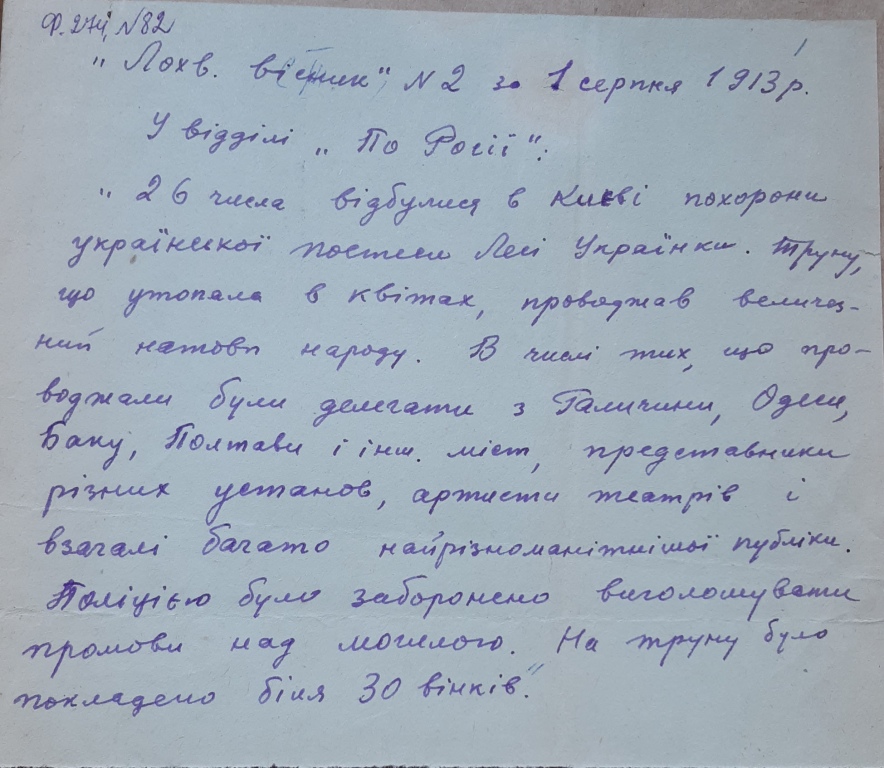 Ф. 274, N82
1
„Лохв. вісник" N 2 за 1 серпня 1913 р.
У відділі „По Росії":
„26 числа відбулися в Києві похорони
української поетеси Лесі Українки. Труну,
що утопала в квітах, проводжав величез-
ний натовп народу. В числі тих, що про-
воджали були делегати з Галичини, Одеси,
Баку, Полтави і інш. міст, представники
різних установ, артисти театрів і
взагалі багато найрізноманітнішої публіки.
Поліцією було заборонено виголошувати
промови над могилою. На труну було
покладено біля 30 вінків."